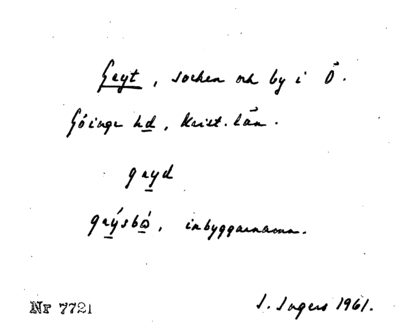 Gryt, socken och by i Ö.
Göinge hd, Krist. län.
gryd
grýsbò, inbyggarnamn.
Nr 7721 I. Ingers 1961.